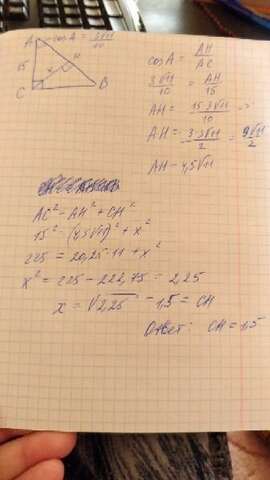 A cosA = 3√11/10
15
x
H
C
B
cosA = AH/AC
3√11/10 = AH/15
AH = 15·3√11/10 =
AH = 3·3√11/2 = 9√11/2
AH = 4,5√11
AC² = AH² + CH²
15² = (4,5√11)² + x²
225 = 20,25·11 + x²
x² = 225 - 222,75 = 2,25
x = √2,25 = 1,5 = CH
Ответ: CH = 1,5